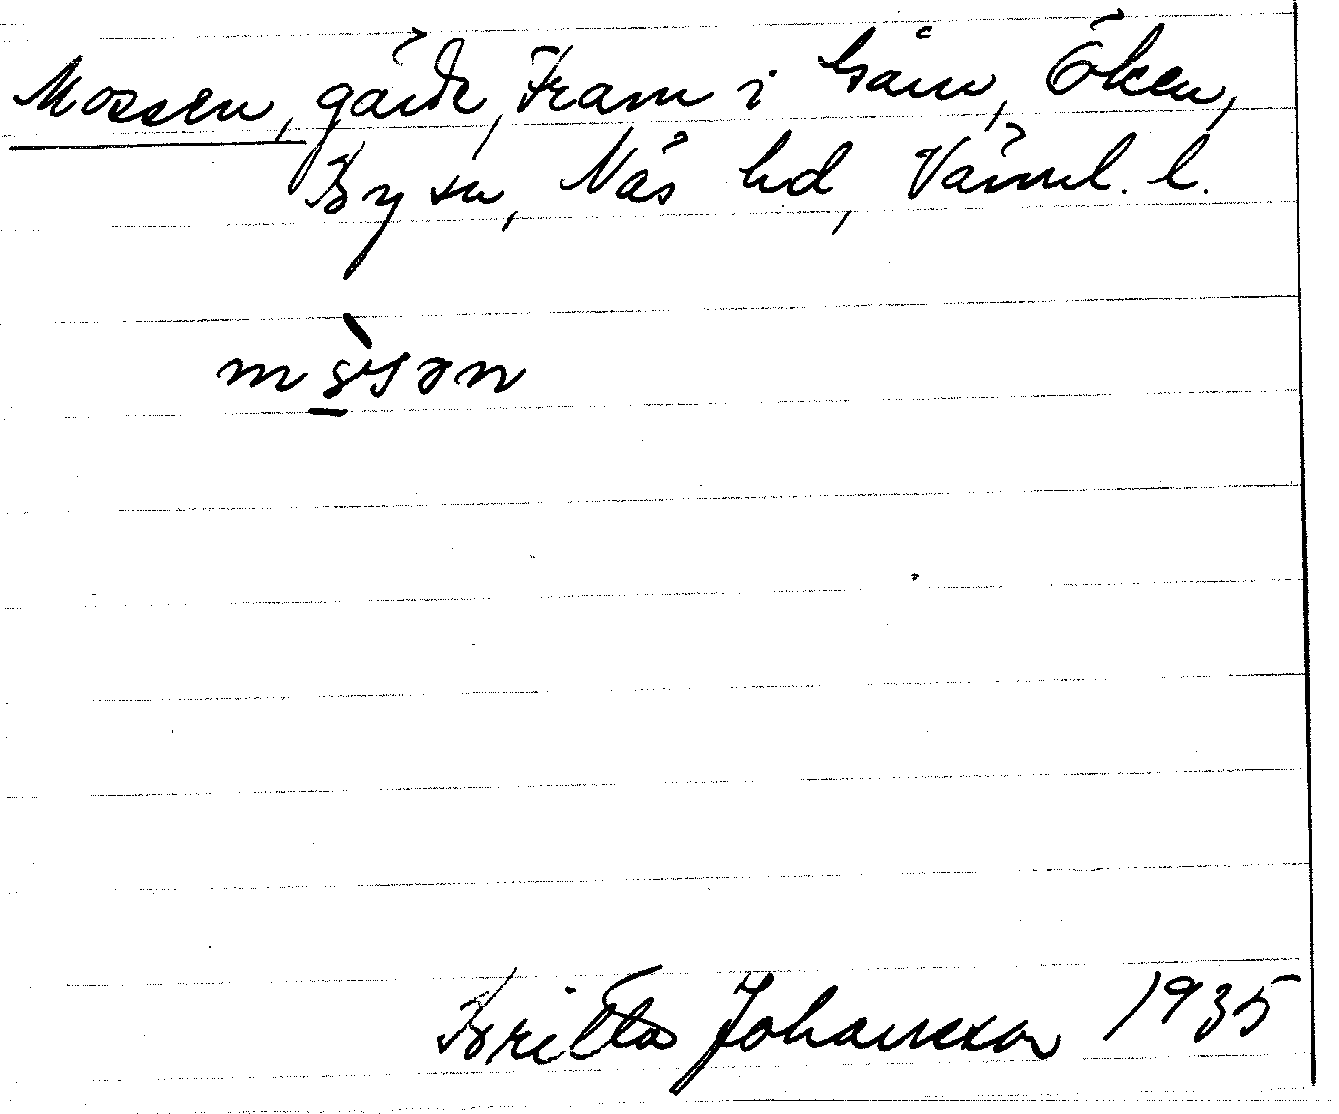 Mossen, gärde, Fram i bam, Öken,
By sn, Näs hd, Värml. l.
mo̠̍sən
Britta Johansson 1935